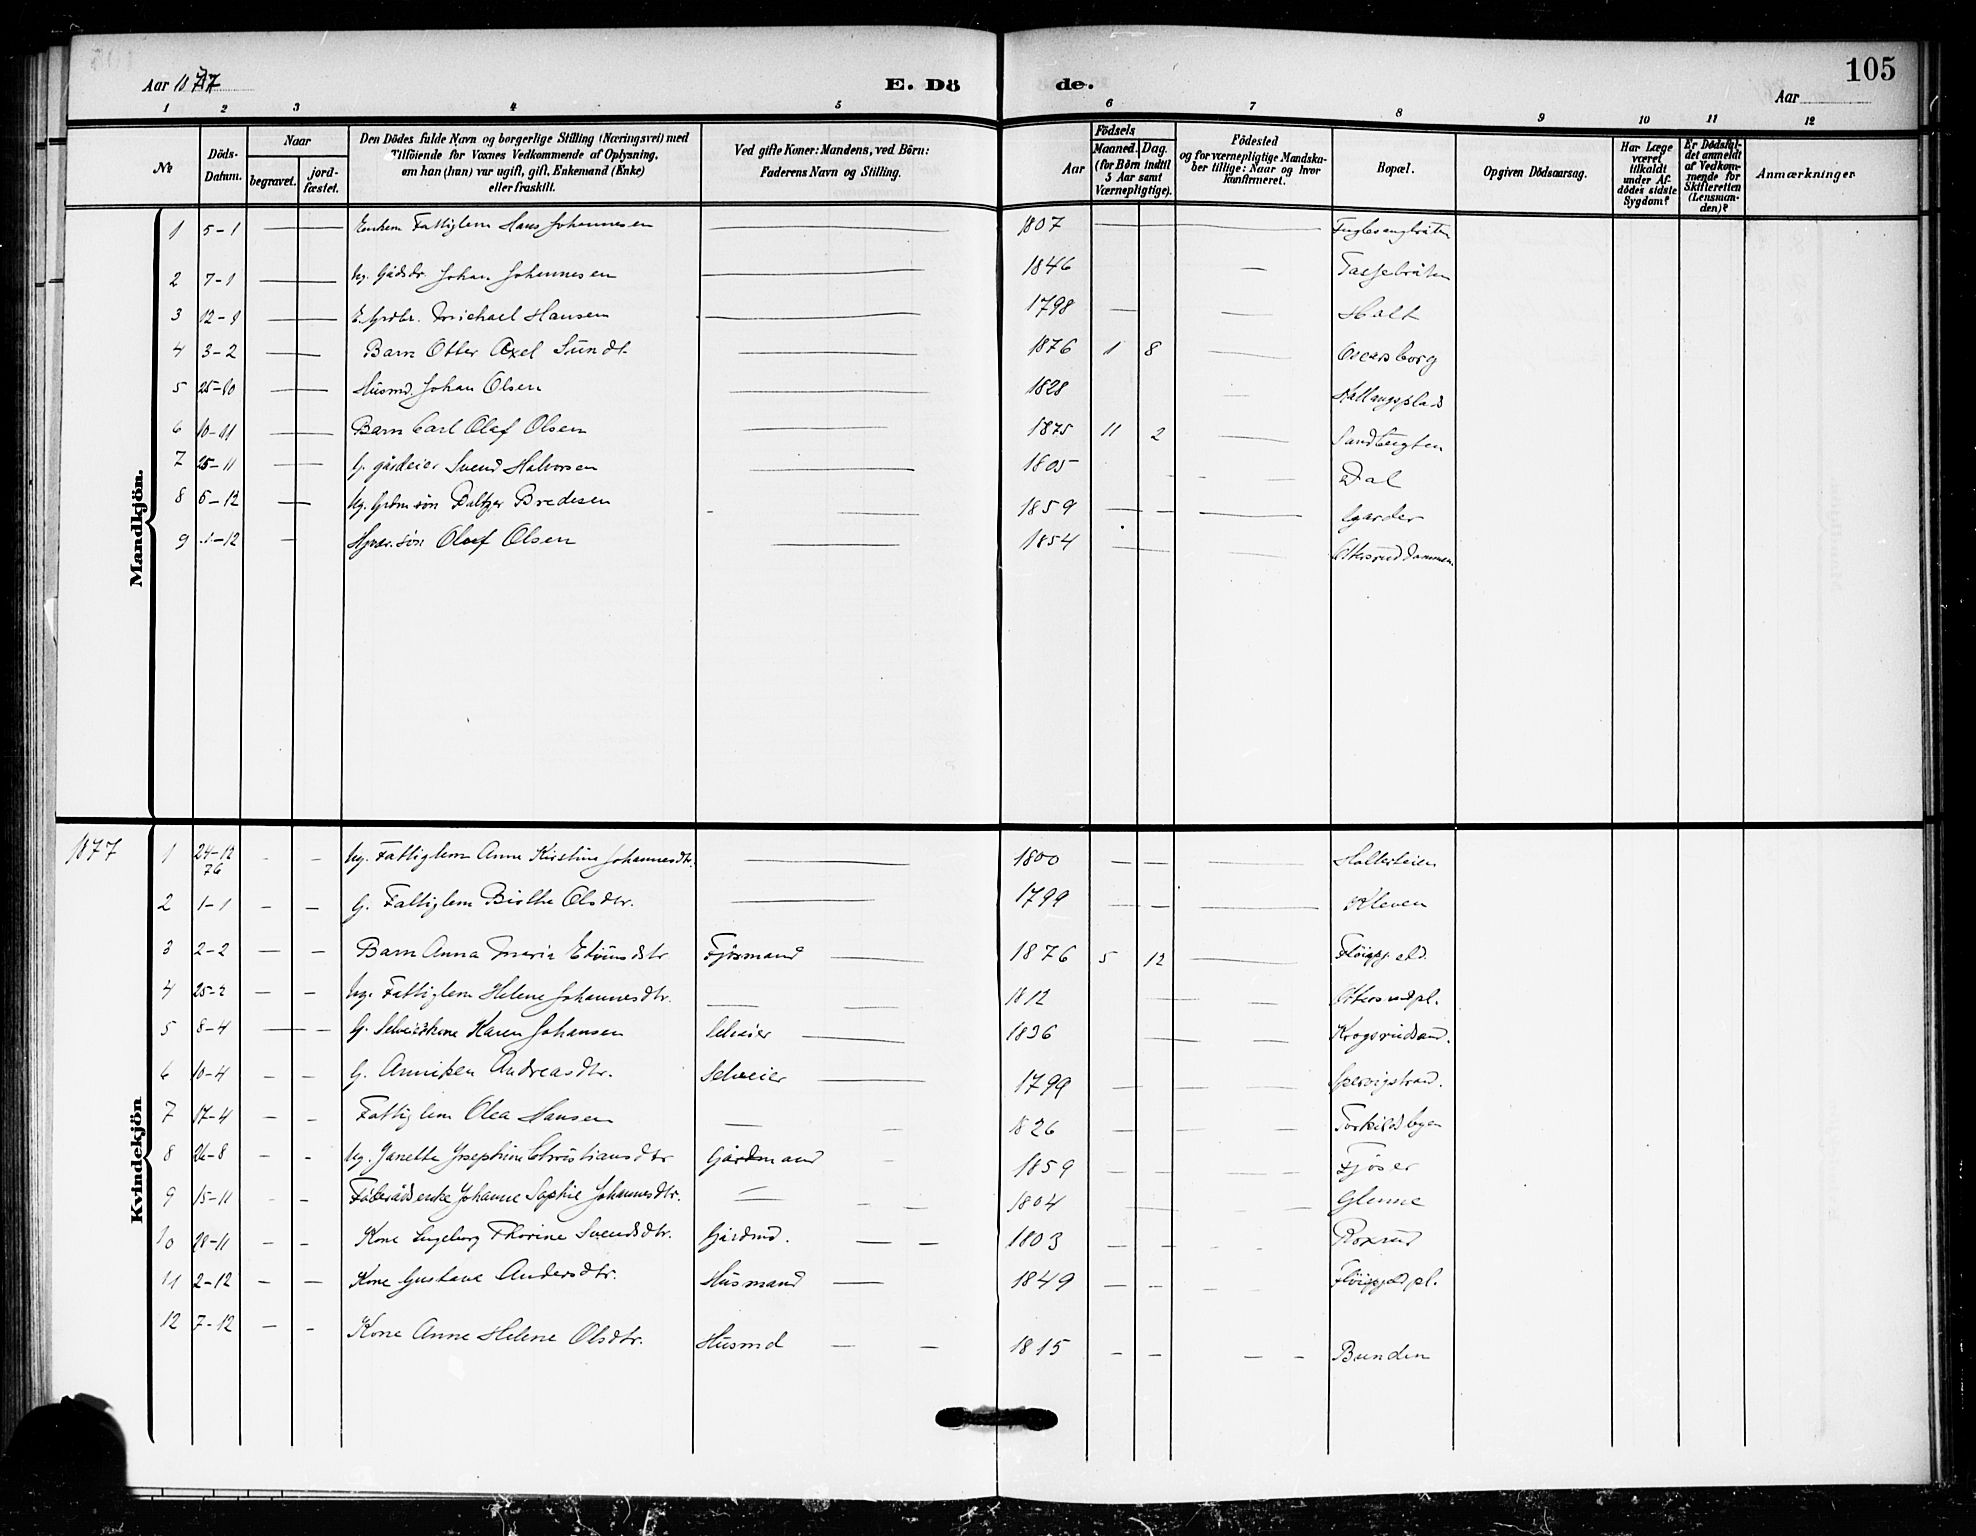 Aar 1877 E. Dö de. Aar 105
1 2 3 4 5 6 7 8 9 10 11 12
№ Döds-Datum. Naar begravet. jordfæstet. Den Dödes fulde Navn og borgerlige Stilling (Næringsvei) med Tilföiende for Voxnes Vedkommende af Oplysning, om han (hun) var ugift, gift, Enkemand (Enke) eller fraskilt. Ved gifte Koner: Mandens, ved Börn: Faderens Navn og Stilling. Aar Födsels Maaned. Dag. (for Börn indtil 5 Aar samt Værnepligtige). Födested og for værnepligtige Mandskaber tillige: Naar og hvor konfirmeret. Bopæl. Opgiven Dödsaarsag. Har Læge været tilkaldt under Afdödes sidste Sygdom? Er Dödsfaldet anmeldt af Vedkommende for Skifteretten (Lensmanden)? Anmærkninger
Mandkjön.
1 5-1 — — Enkem Fattiglem Hans Johannesen — 1807 — —
2 7-1 — — Ug. Gådbr. Johan Johannesen — 1846 —
3 12-1 — — E. Grdbr. Michael Hansen — 1798 — — Holt
4 3-2 — — Barn Otter Axel Sundt — 1876 1 8 — Oscarsborg
5 25-10 — — Husmd. Johan Olsen — 1828 — Kallangsplads
6 10-11 — — Barn Carl Olaf Olsen — 1875 11 2 — Sandbugten
7 25-11 — — G. gårdeier Svend Halvorsen — 1805 — Dal
8 6-12 — — Ug. Grdm søn Baltzer Bredesen — 1859 — — — Garder
9 1-12 — søn Oluf Olsen — 1854 — —
1877
Kvindekjön
1 24-12 76 — — Ug. Fattiglem Anne Kirstine Johannesdtr. — 1800 — — — Holterteien
2 1-1 — — G. Fattiglem Birthe Olsdtr. — 1799 — — — Kleven
3 2-2 — — Barn Anna Maria Edvinsdtr. Fjøsmand — 1876 5 12 —
4 25-2 — — Ug. Fattiglem Helene Johannesdtr. — — 1812 — — Ottersrudpl.
5 8-4 — — G. Selveierkone Karen Johansen Selveier — 1836 — —
6 10-4 — — G. Anniken Andreasdtr. Selveier — 1799 — — — Spervigstrand.
7 17-4 — — Fattiglem Olea Hansen — — 1826 — — — Torkildsbyen
8 26-8 — — Ug. Janette Josephine Christiansdtr Gårdmand — 1859 — — — Fjøser
9 15-11 — — Føderådsenke Johanne Sophie Johannesdtr. — — 1804 — — — Glenne
10 28-11 — — Kone Ingeborg Thorine Svendsdtr. Gårdmd. — — 1803 — — — — Roxrud
11 2-12 — — Kone Gustava Andersdtr. Husmand — 1849 — — — —
12 7-12 — — Kone Anne Helene Olsdtr. Husmd — — 1815 — — — — Bunden